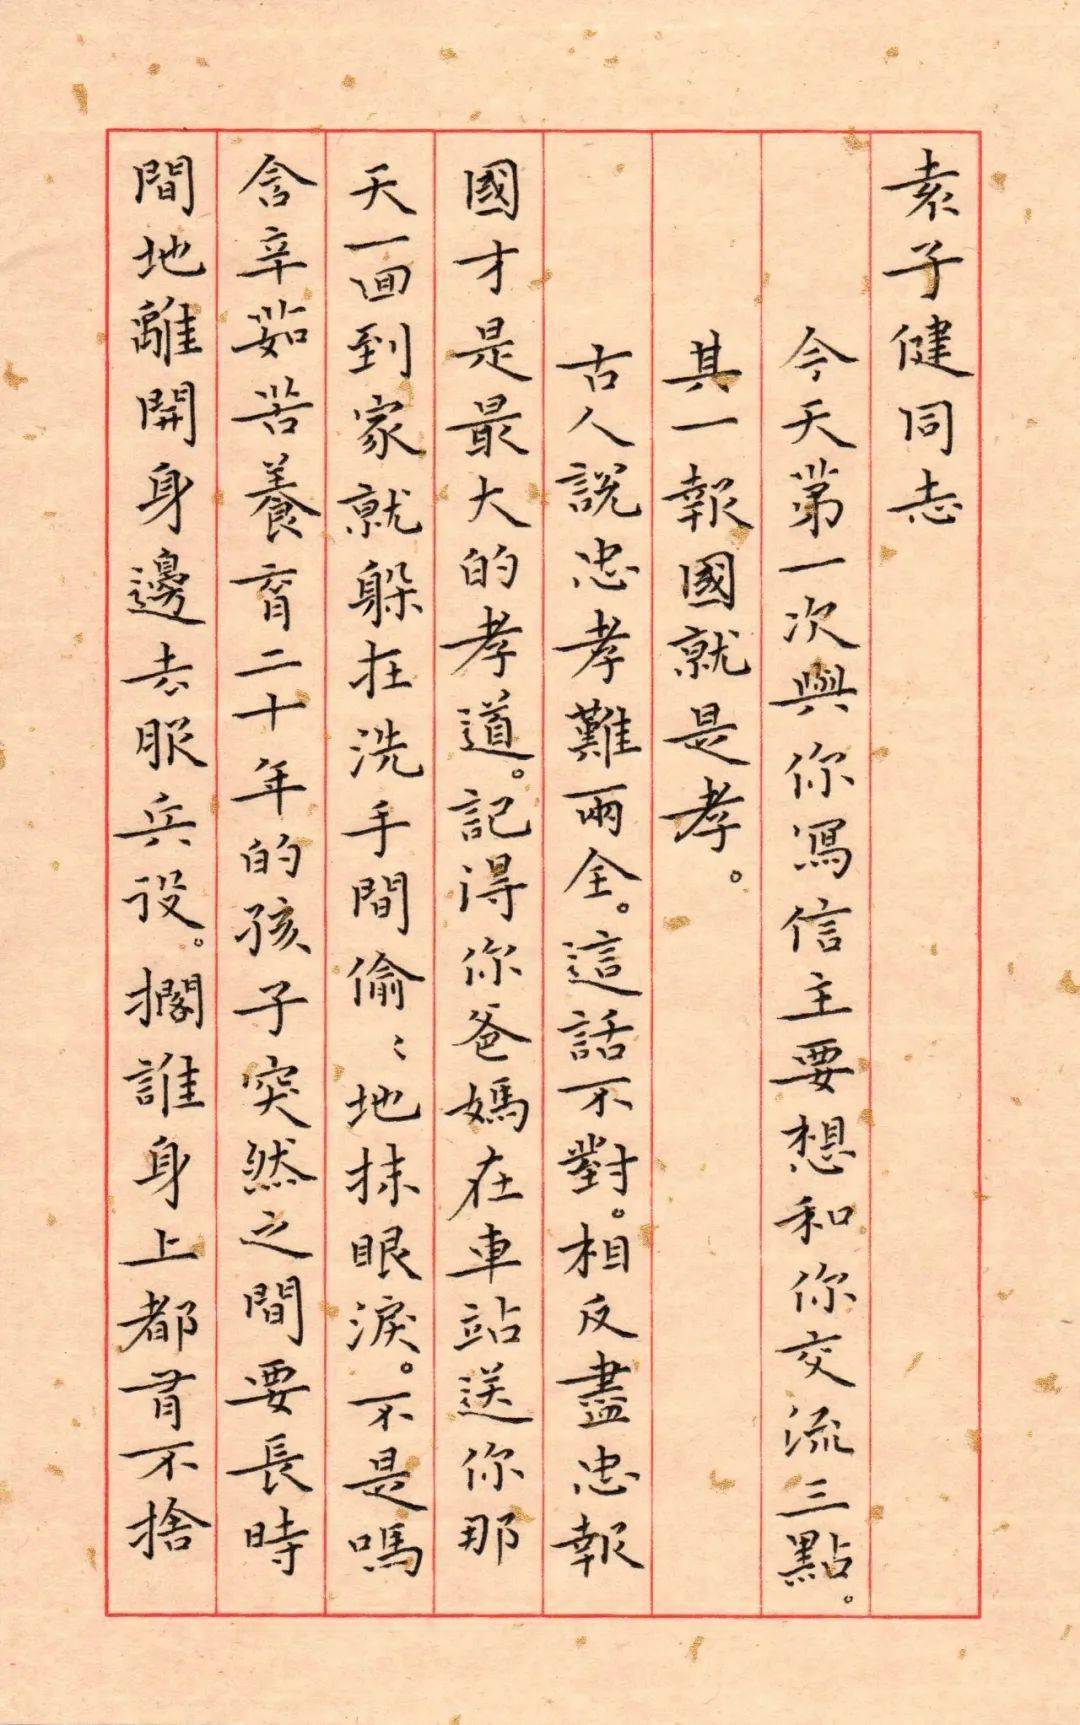 袁子健同志
今天第一次與你寫信主要想和你交流三點。
其一報國就是孝。
古人說忠孝難兩全。這話不對。相反盡忠報
國才是最大的孝道。記得你爸媽在車站送你那
天一回到家就躲在洗手間偷〻地抹眼淚。不是嗎
含辛茹苦養育二十年的孩子突然之間要長時
間地離開身邊去服兵役。擱誰身上都有不捨